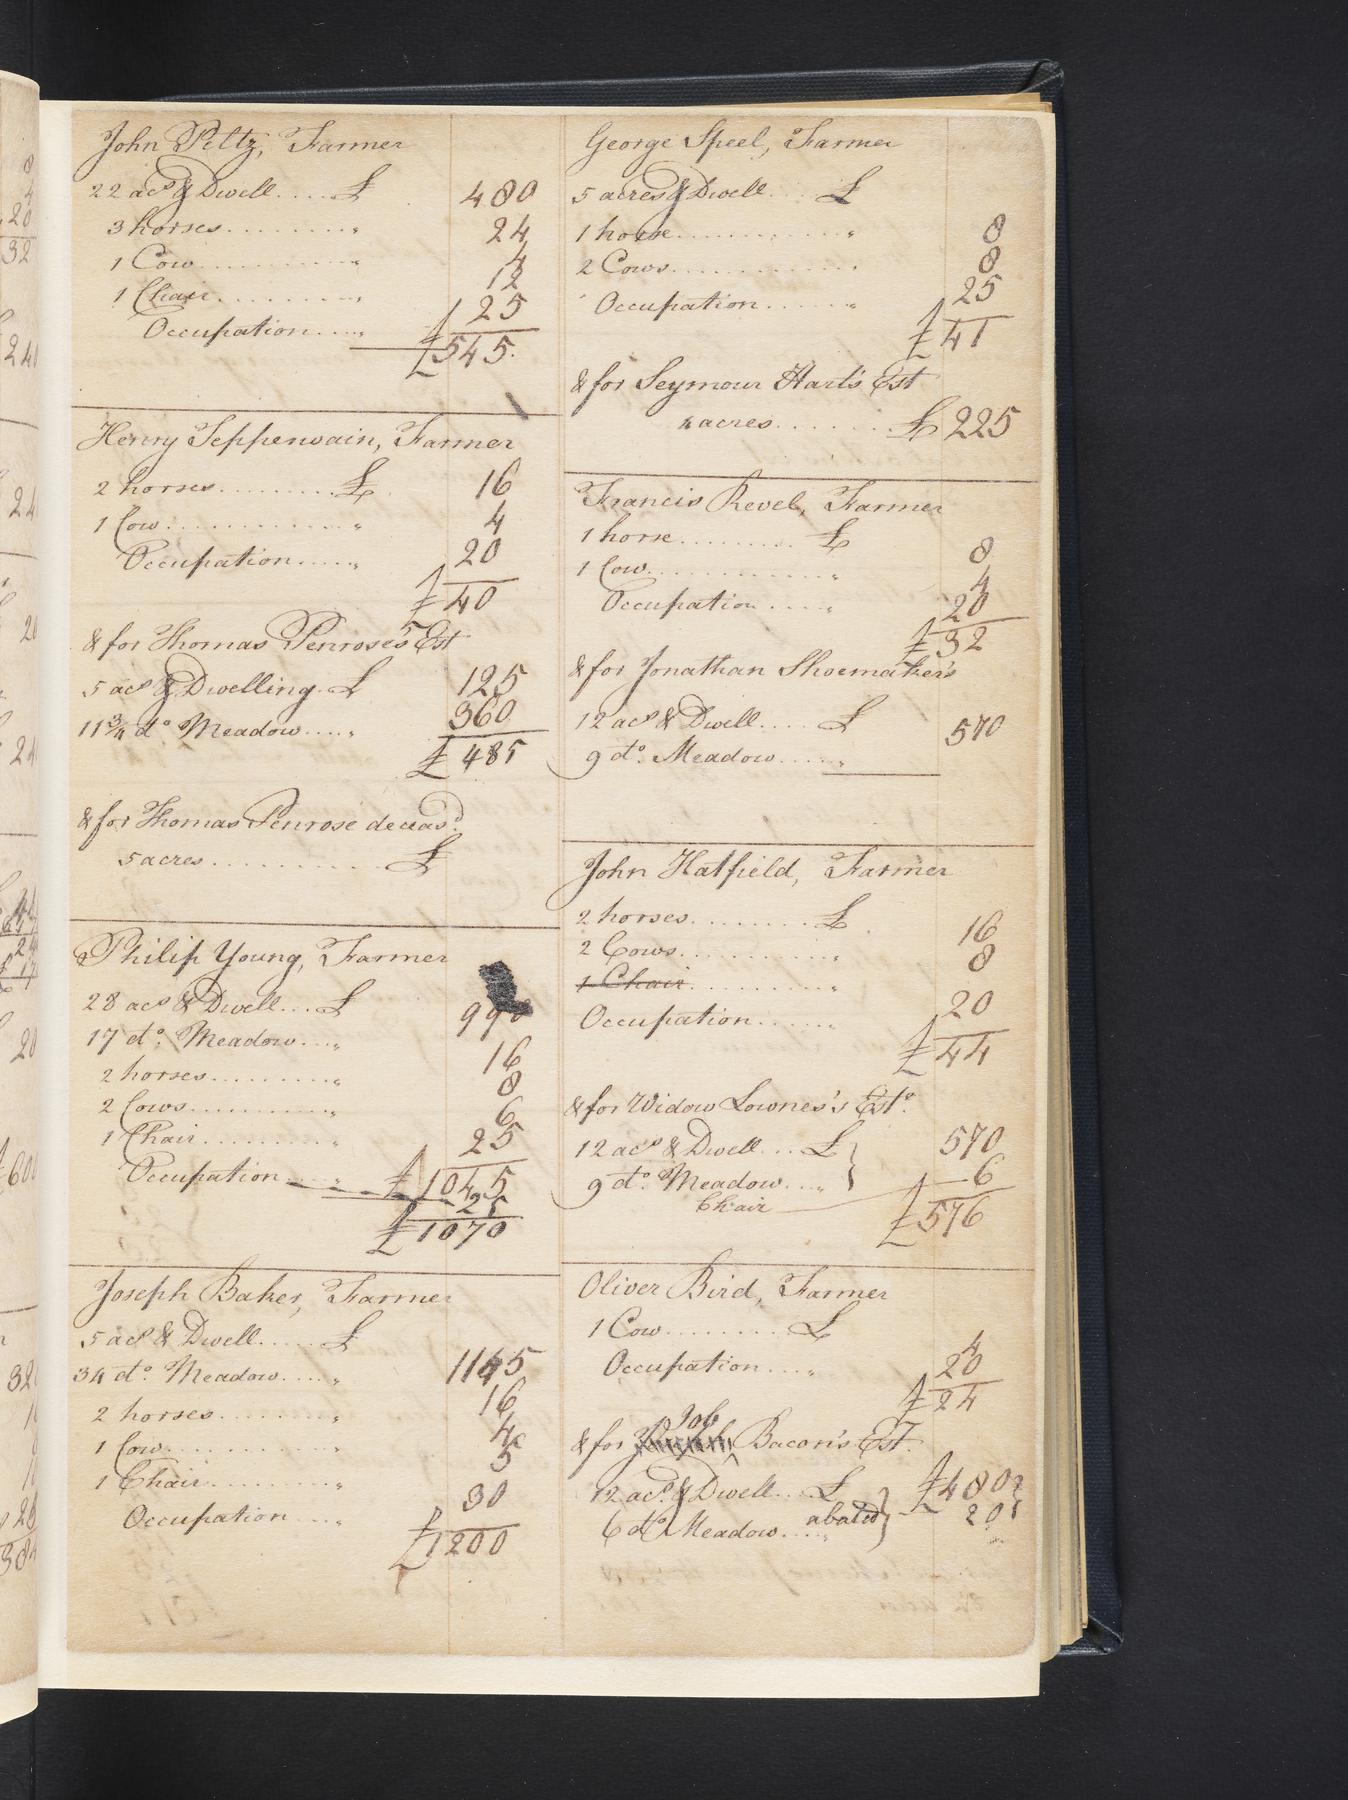 John Peltz, Farmer
22 acs & Dwell ..... £ 480
3 horses .......... " 24
1 Cow ............ " 4
1 Chair .......... " 12
Occupation ..... " 25
£ 545
Henry Seppenwain, Farmer
2 horses .......... £ 16
1 Cow ............. " 4
Occupation ..... " 20
£ 40
& for Thomas Penrose's Est
5 acs & Dwelling . £ 125
11 3/4 do Meadow ..... " 360
£ 485
& for Thomas Penrose deceasd.
5 acres ............ £
Philip Young, Farmer
28 acs & Dwell .... £
17 do. Meadow .... " 990
2 horses .......... " 16
2 Cows ............ " 8
1 Chair .......... " 6
Occupation ..... " 25
£ 1045
25
£ 1070
Joseph Baker, Farmer
5 acs & Dwell ..... £
34 do. Meadow ..... " 1145
2 horses .......... " 16
1 Cow ............. " 4
1 Chair .......... " 5
Occupation ..... " 30
£ 1200
George Speel, Farmer
5 acres & Dwell ... £
1 horse ........... " 8
2 Cows ............ " 8
Occupation ...... " 25
£ 41
& for Seymour Hart's Est
acres ........ £ 225
Francis Revel, Farmer
1 horse ......... £ 8
1 Cow ............ " 4
Occupation ..... " 20
£ 32
& for Jonathan Shoemaker's
12 acs & Dwell ..... £ 570
9 do. Meadow ..... "
John Hatfield, Farmer
2 horses ......... £ 16
2 Cows ............ " 8
1 Chair .......... "
Occupation ...... " 20
£ 44
& for Widow Lownes's Esto.
12 acs & Dwell .... £ 570
9 do. Meadow .... "
Chair 6
£ 576
Oliver Bird, Farmer
1 Cow ......... £ 4
Occupation ..... " 20
£ 24
Job
& for Bacon's Est.
12 acs. & Dwell .... £ £ 480
6 do Meadow .... " abated 20